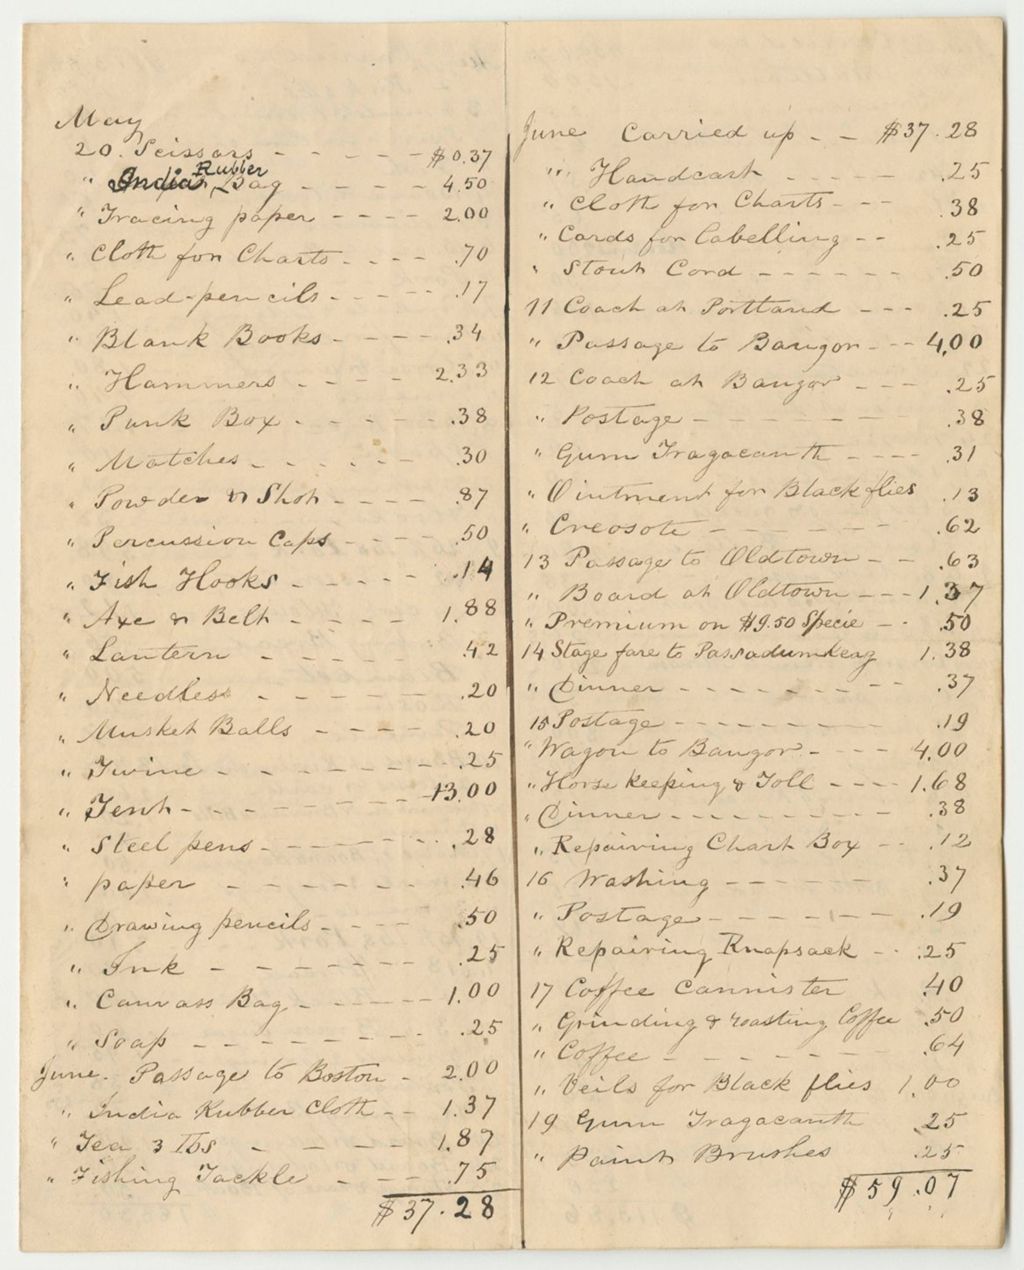 May
20. Scissors - - - - - $0.37
" India Rubber Bag - - - - - 4.50
" Tracing paper - - - - 2.00
" Cloth for Charts - - - - .70
" Lead-pencils - - - - .17
" Blank Books - - - - .34
" Hammers - - - - - 2.33
" Punk Box - - - - - .38
" Matches - - - - - - .30
" Powder & Shot - - - - .87
" Percussion Caps - - - - .50
" Fish Hooks - - - - - .14
" Axe & Belt - - - - 1.88
" Lantern - - - - - .42
" Needless - - - - - - .20
" Musket Balls - - - - .20
" Twine - - - - - - - .25
" Tent - - - - - - - - 13.00
" Steel pens - - - - - - .28
" paper - - - - - - .46
" Drawing pencils - - - - .50
" Ink - - - - - - - .25
" Canvass Bag - - - - - 1.00
" Soap - - - - - - - - .25
June. Passage to Boston - 2.00
" India Rubber Cloth - - 1.37
" Tea 3 lbs - - - - 1.87
" Fishing Tackle - - - .75
$37.28
June Carried up - - $37.28
" Handcart - - - - - .25
" Cloth for Charts - - - .38
" Cards for labelling - - .25
" Stout Cord - - - - - - .50
11 Coach at Portland - - - .25
" Passage to Bangor - - - 4.00
12 Coach at Bangor - - - .25
" Postage - - - - - - .38
" Gum Tragacanth - - - - .31
" Ointment for Black flies .13
" Creosote - - - - - - .62
13 Passage to Oldtown - - .63
" Board at Oldtown - - - 1.37
" Premium on $9.50 Specie - - .50
14 Stage fare to Passadumkeag 1.38
" Dinner - - - - - - - - .37
15 Postage - - - - - - - .19
" Wagon to Bangor - - - - 4.00
" Horse keeping & Toll - - - - 1.68
" Dinner - - - - - - - - - .38
" Repairing Chart Box - - .12
16 Washing - - - - - - .37
" Postage - - - - - - - .19
" Repairing Knapsack - - .25
17 Coffee Cannister .40
" Grinding & roasting Coffee .50
" Coffee - - - - - - - .64
" Veils for Black flies 1.00
19 Gum Tragacanth .25
" Paint Brushes .25
$59.07